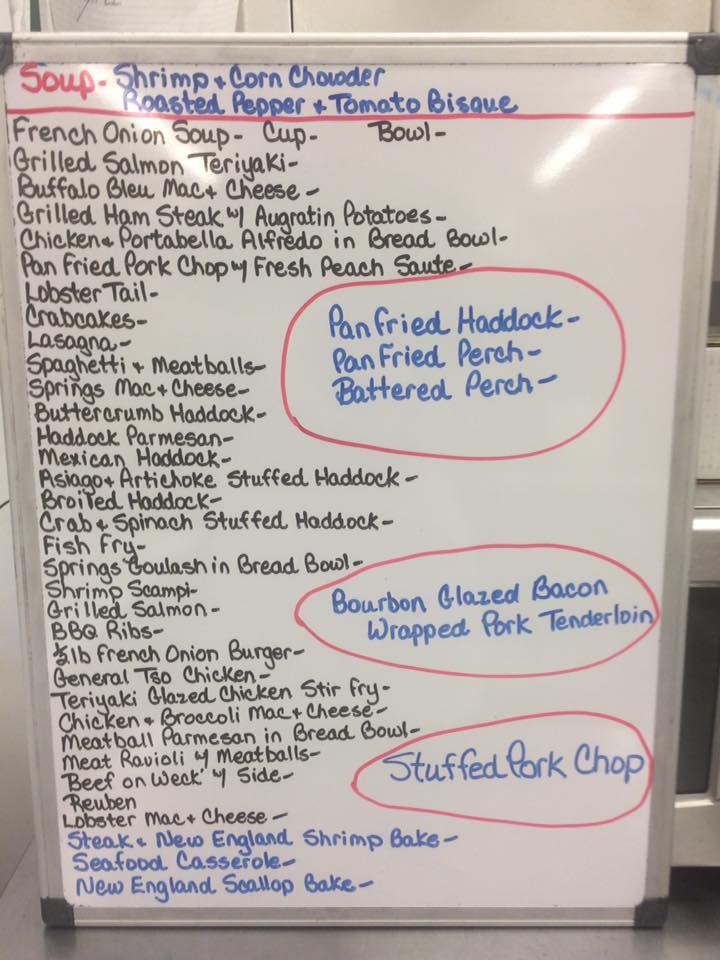 Soup- Shrimp + Corn Chowder
Roasted Pepper + Tomato Bisque
French Onion Soup- Cup- Bowl-
Grilled Salmon Teriyaki-
Buffalo Bleu Mac + Cheese-
Grilled Ham Steak w/ Augratin Potatoes-
Chicken + Portabella Alfredo in Bread Bowl-
Pan Fried Pork Chop w/ Fresh Peach Saute-
Lobster Tail-
Crabcakes-
Lasagna-
Spaghetti + Meatballs-
Springs Mac + Cheese-
Buttercrumb Haddock-
Haddock Parmesan-
Mexican Haddock-
Asiago + Artichoke Stuffed Haddock-
Broiled Haddock-
Crab + Spinach Stuffed Haddock-
Fish Fry-
Springs Goulash in Bread Bowl-
Shrimp Scampi-
Grilled Salmon-
BBQ Ribs-
1/2 lb French Onion Burger-
General Tso Chicken-
Teriyaki Glazed Chicken Stir Fry-
Chicken + Broccoli Mac + Cheese-
Meatball Parmesan in Bread Bowl-
Meat Ravioli w/ Meatballs-
Beef on Weck' w/ Side-
Reuben
Lobster Mac + Cheese-
Steak + New England Shrimp Bake-
Seafood Casserole-
New England Scallop Bake-
Pan Fried Haddock-
Pan Fried Perch-
Battered Perch-
Bourbon Glazed Bacon
Wrapped Pork Tenderloin
Stuffed Pork Chop